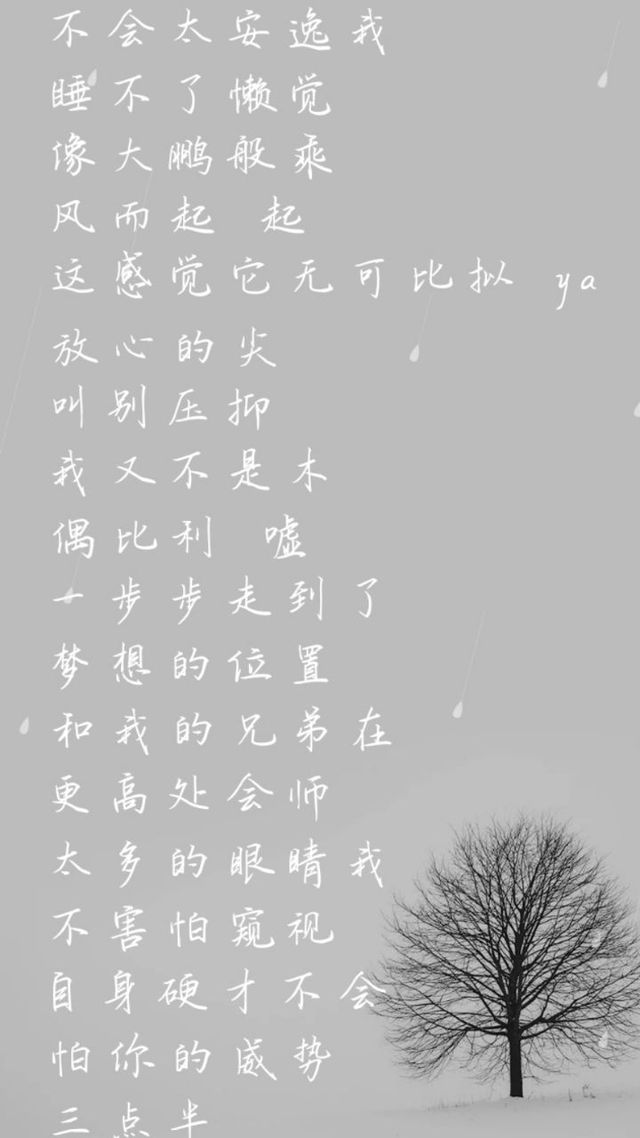 不会太安逸我
睡不了懒觉
像大鹏般乘
风而起 起
这感觉它无可比拟 ya
放心的尖
叫别压抑
我又不是木
偶比利 嘘
一步步走到了
梦想的位置
和我的兄弟在
更高处会师
太多的眼睛我
不害怕窥视
自身硬才不会
怕你的威势
三点半